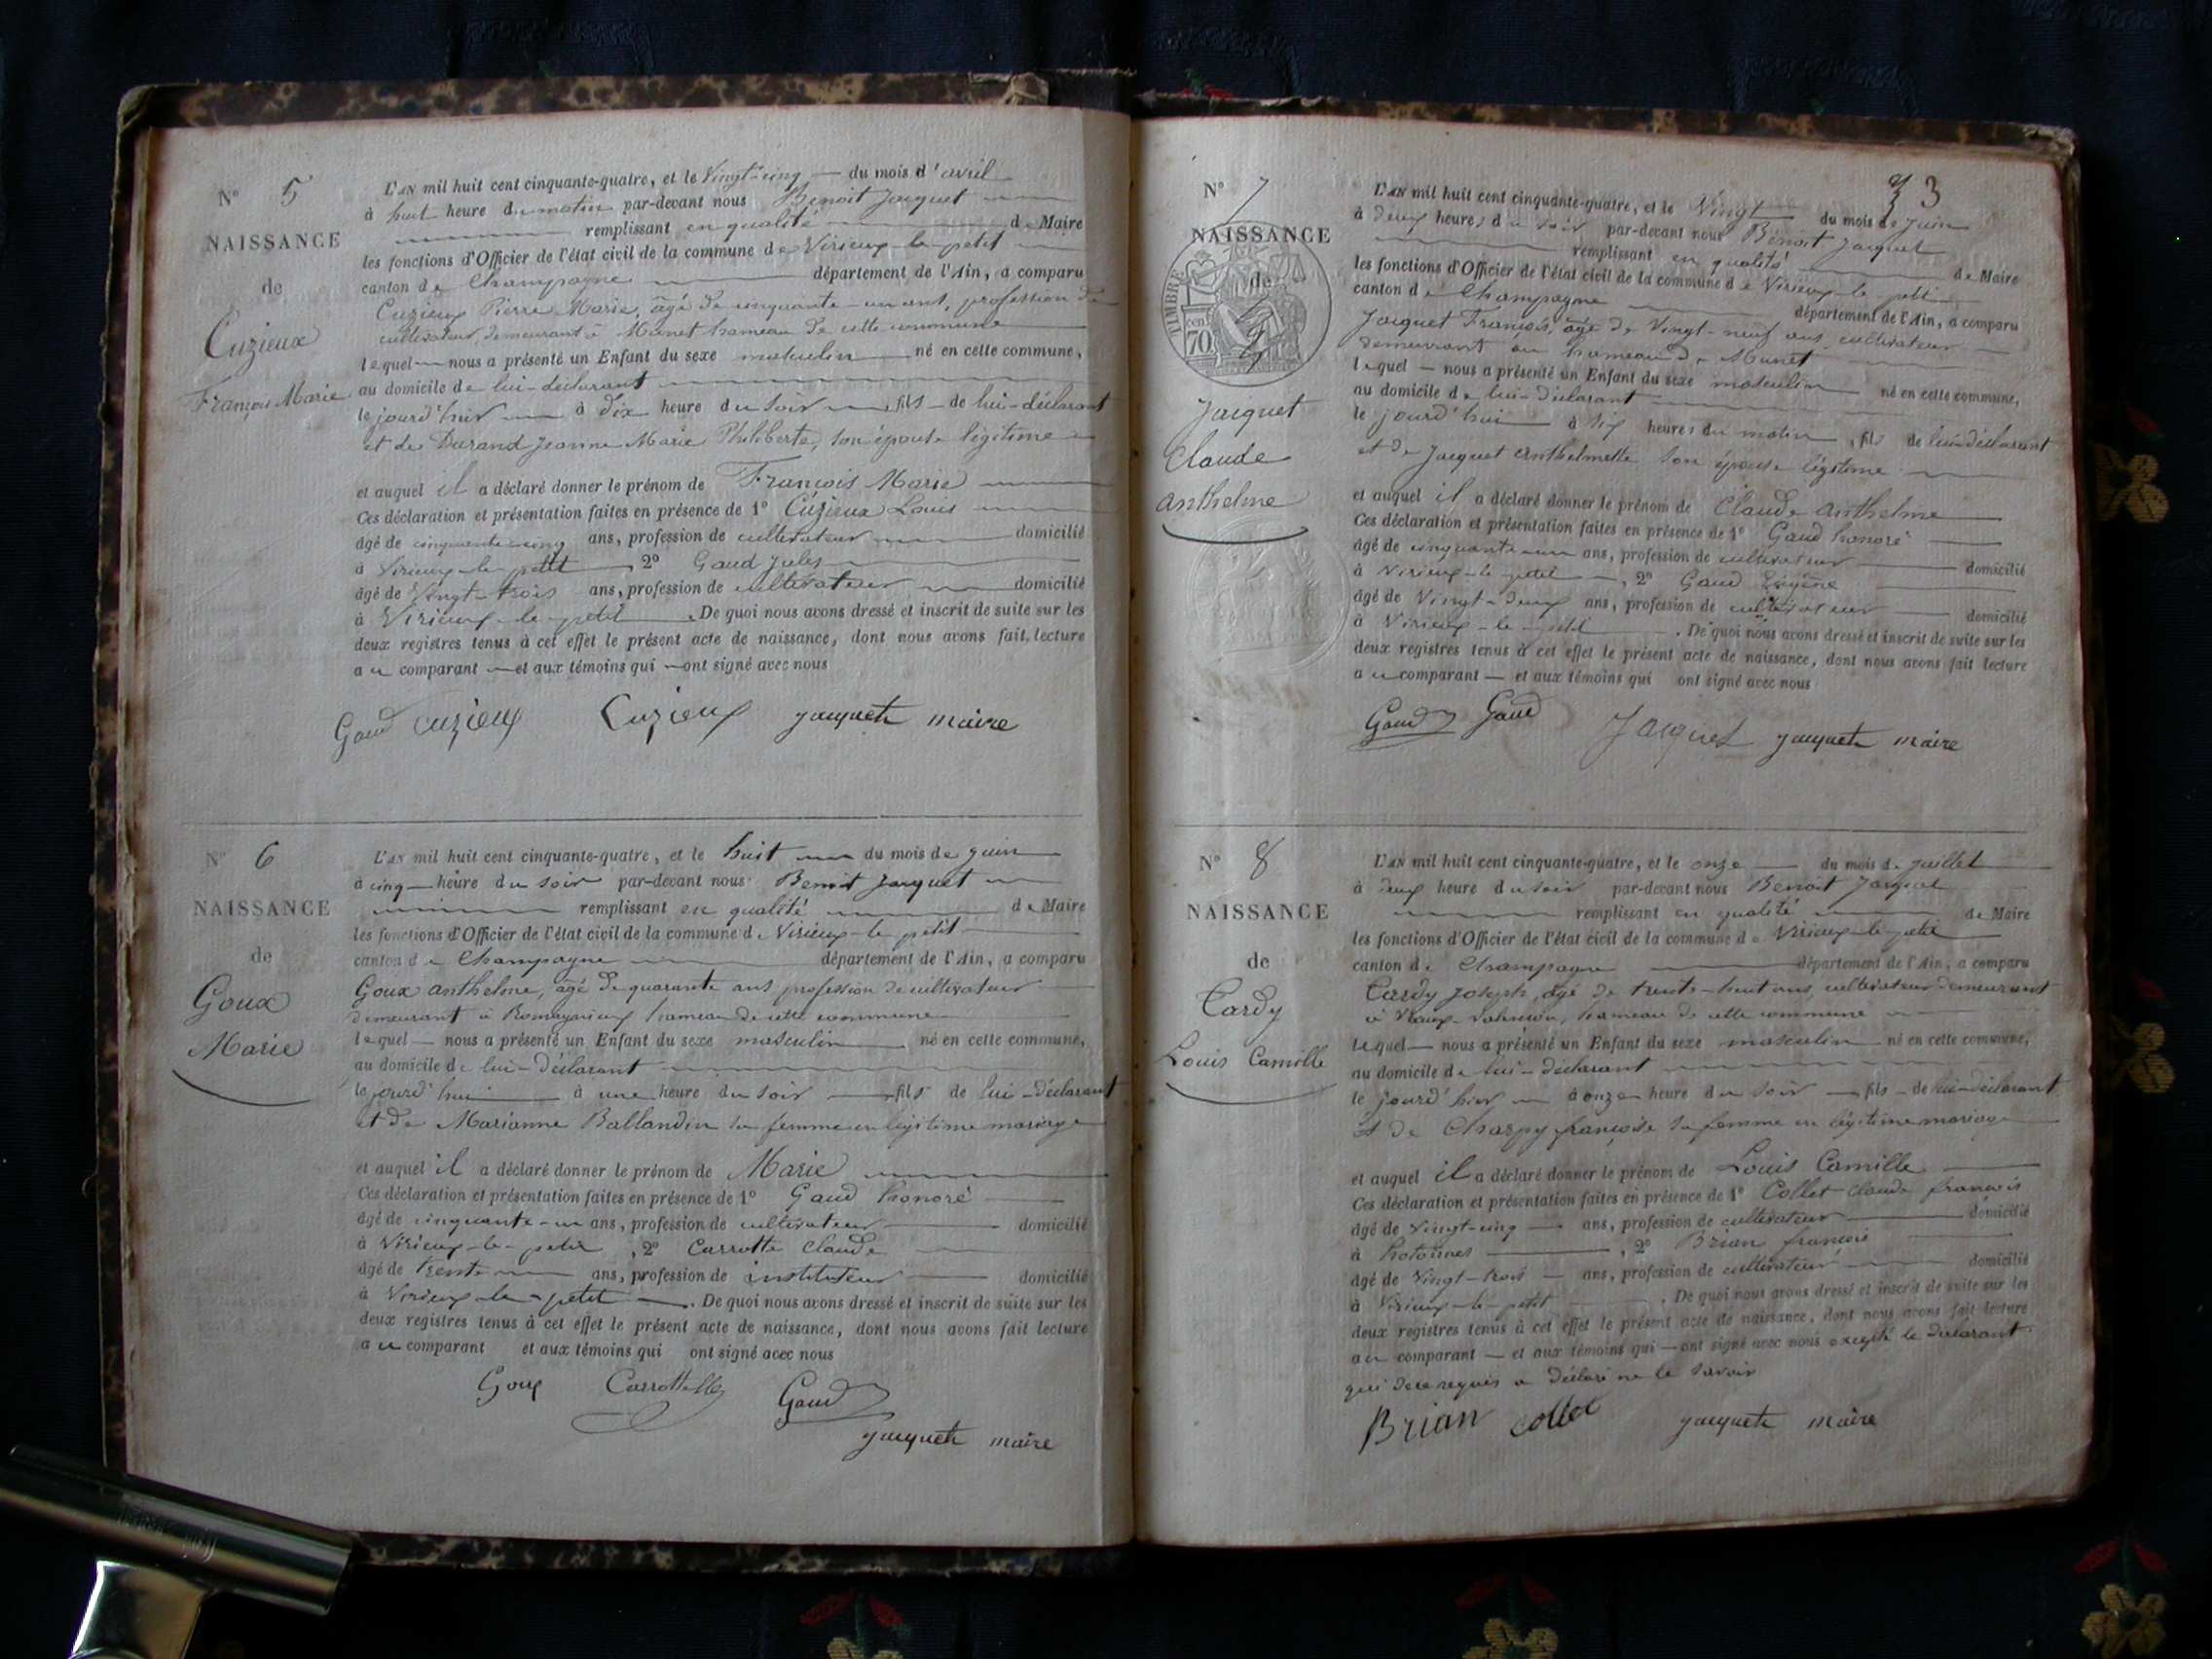 N° 5
NAISSANCE
de
Cuzieux
François Marie
L'AN mil huit cent cinquante-quatre, et le Vingt-cinq du mois d'avril
à huit heure du matin par-devant nous Benoit Jacquet
remplissant en qualité de Maire
les fonctions d'Officier de l'état civil de la commune de Virieux-le-petit
canton de Champagne département de l'Ain, a comparu
Cuzieux Pierre Marie, âgé de cinquante-un ans, profession de
cultivateur, demeurant à Munet hameau de cette commune
lequel nous a présenté un Enfant du sexe masculin né en cette commune,
au domicile de lui-déclarant
le jourd'hier à dix heure du soir fils de lui-déclarant
et de Durand Jeanne Marie Philiberte, son épouse légitime
et auquel il a déclaré donner le prénom de François Marie
Ces déclaration et présentation faites en présence de 1° Cuzieux Louis
âgé de cinquante-cinq ans, profession de cultivateur domicilié
à Virieux-le-petit, 2° Gaud Jules
âgé de Vingt-trois ans, profession de cultivateur domicilié
à Virieux-le-petit. De quoi nous avons dressé et inscrit de suite sur les
deux registres tenus à cet effet le présent acte de naissance, dont nous avons fait lecture
au comparant et aux témoins qui ont signé avec nous
Gaud Cuzieux Cuzieux Jacquet maire
N° 6
NAISSANCE
de
Goux
Marie
L'AN mil huit cent cinquante-quatre, et le huit du mois de juin
à cinq heure du soir par-devant nous Benoit Jacquet
remplissant en qualité de Maire
les fonctions d'Officier de l'état civil de la commune de Virieux-le-petit
canton de Champagne département de l'Ain, a comparu
Goux Anthelme, âgé de quarante ans profession de cultivateur
demeurant à Romagnieux hameau de cette commune
lequel nous a présenté un Enfant du sexe masculin né en cette commune,
au domicile de lui-déclarant
le jourd'hui à une heure du soir fils de lui-déclarant
et de Marianne Ballandin sa femme en légitime mariage
et auquel il a déclaré donner le prénom de Marie
Ces déclaration et présentation faites en présence de 1° Gaud honoré
âgé de cinquante-un ans, profession de cultivateur domicilié
à Virieux-le-petit, 2° Carrotte Claude
âgé de trente ans, profession de instituteur domicilié
à Virieux-le-petit. De quoi nous avons dressé et inscrit de suite sur les
deux registres tenus à cet effet le présent acte de naissance, dont nous avons fait lecture
au comparant et aux témoins qui ont signé avec nous
Goux Carrotte Gaud
Jacquet maire
33
N° 7
NAISSANCE
de
TIMBRE
70 cent
Jacquet
Claude
Anthelme
L'AN mil huit cent cinquante-quatre, et le Vingt du mois de Juin
à deux heures du soir par-devant nous Benoit Jacquet
remplissant en qualité de Maire
les fonctions d'Officier de l'état civil de la commune de Virieux-le-petit
canton de Champagne département de l'Ain, a comparu
Jacquet François, âgé de Vingt-neuf ans, cultivateur
demeurant au hameau de Munet
lequel nous a présenté un Enfant du sexe masculin né en cette commune,
au domicile de lui-déclarant
le jourd'hui à six heures du matin, fils de lui-déclarant
et de Jacquet Anthelmette son épouse légitime
et auquel il a déclaré donner le prénom de Claude Anthelme
Ces déclaration et présentation faites en présence de 1° Gaud honoré
âgé de cinquante-un ans, profession de cultivateur domicilié
à Virieux-le-petit, 2° Gaud
âgé de Vingt-deux ans, profession de cultivateur domicilié
à Virieux-le-petit. De quoi nous avons dressé et inscrit de suite sur les
deux registres tenus à cet effet le présent acte de naissance, dont nous avons fait lecture
au comparant et aux témoins qui ont signé avec nous
Gaud Gaud Jacquet Jacquet maire
N° 8
NAISSANCE
de
Tardy
Louis Camille
L'AN mil huit cent cinquante-quatre, et le onze du mois de juillet
à deux heure du soir par-devant nous Benoit Jacquet
remplissant en qualité de Maire
les fonctions d'Officier de l'état civil de la commune de Virieux-le-petit
canton de Champagne département de l'Ain, a comparu
Tardy Joseph, âgé de trente-huit ans, cultivateur demeurant
à hameau de cette commune
lequel nous a présenté un Enfant du sexe masculin né en cette commune,
au domicile de lui-déclarant
le jourd'hier à onze heure du soir fils de lui-déclarant
et de Charpy françoise sa femme en légitime mariage
et auquel il a déclaré donner le prénom de Louis Camille
Ces déclaration et présentation faites en présence de 1° Collet Claude françois
âgé de Vingt-cinq ans, profession de cultivateur domicilié
à hotonnes, 2° Brian françois
âgé de Vingt-trois ans, profession de cultivateur domicilié
à Virieux-le-petit. De quoi nous avons dressé et inscrit de suite sur les
deux registres tenus à cet effet le présent acte de naissance, dont nous avons fait lecture
au comparant et aux témoins qui ont signé avec nous excepté le déclarant
qui de ce requis a déclaré ne le savoir
Brian Collet Jacquet maire